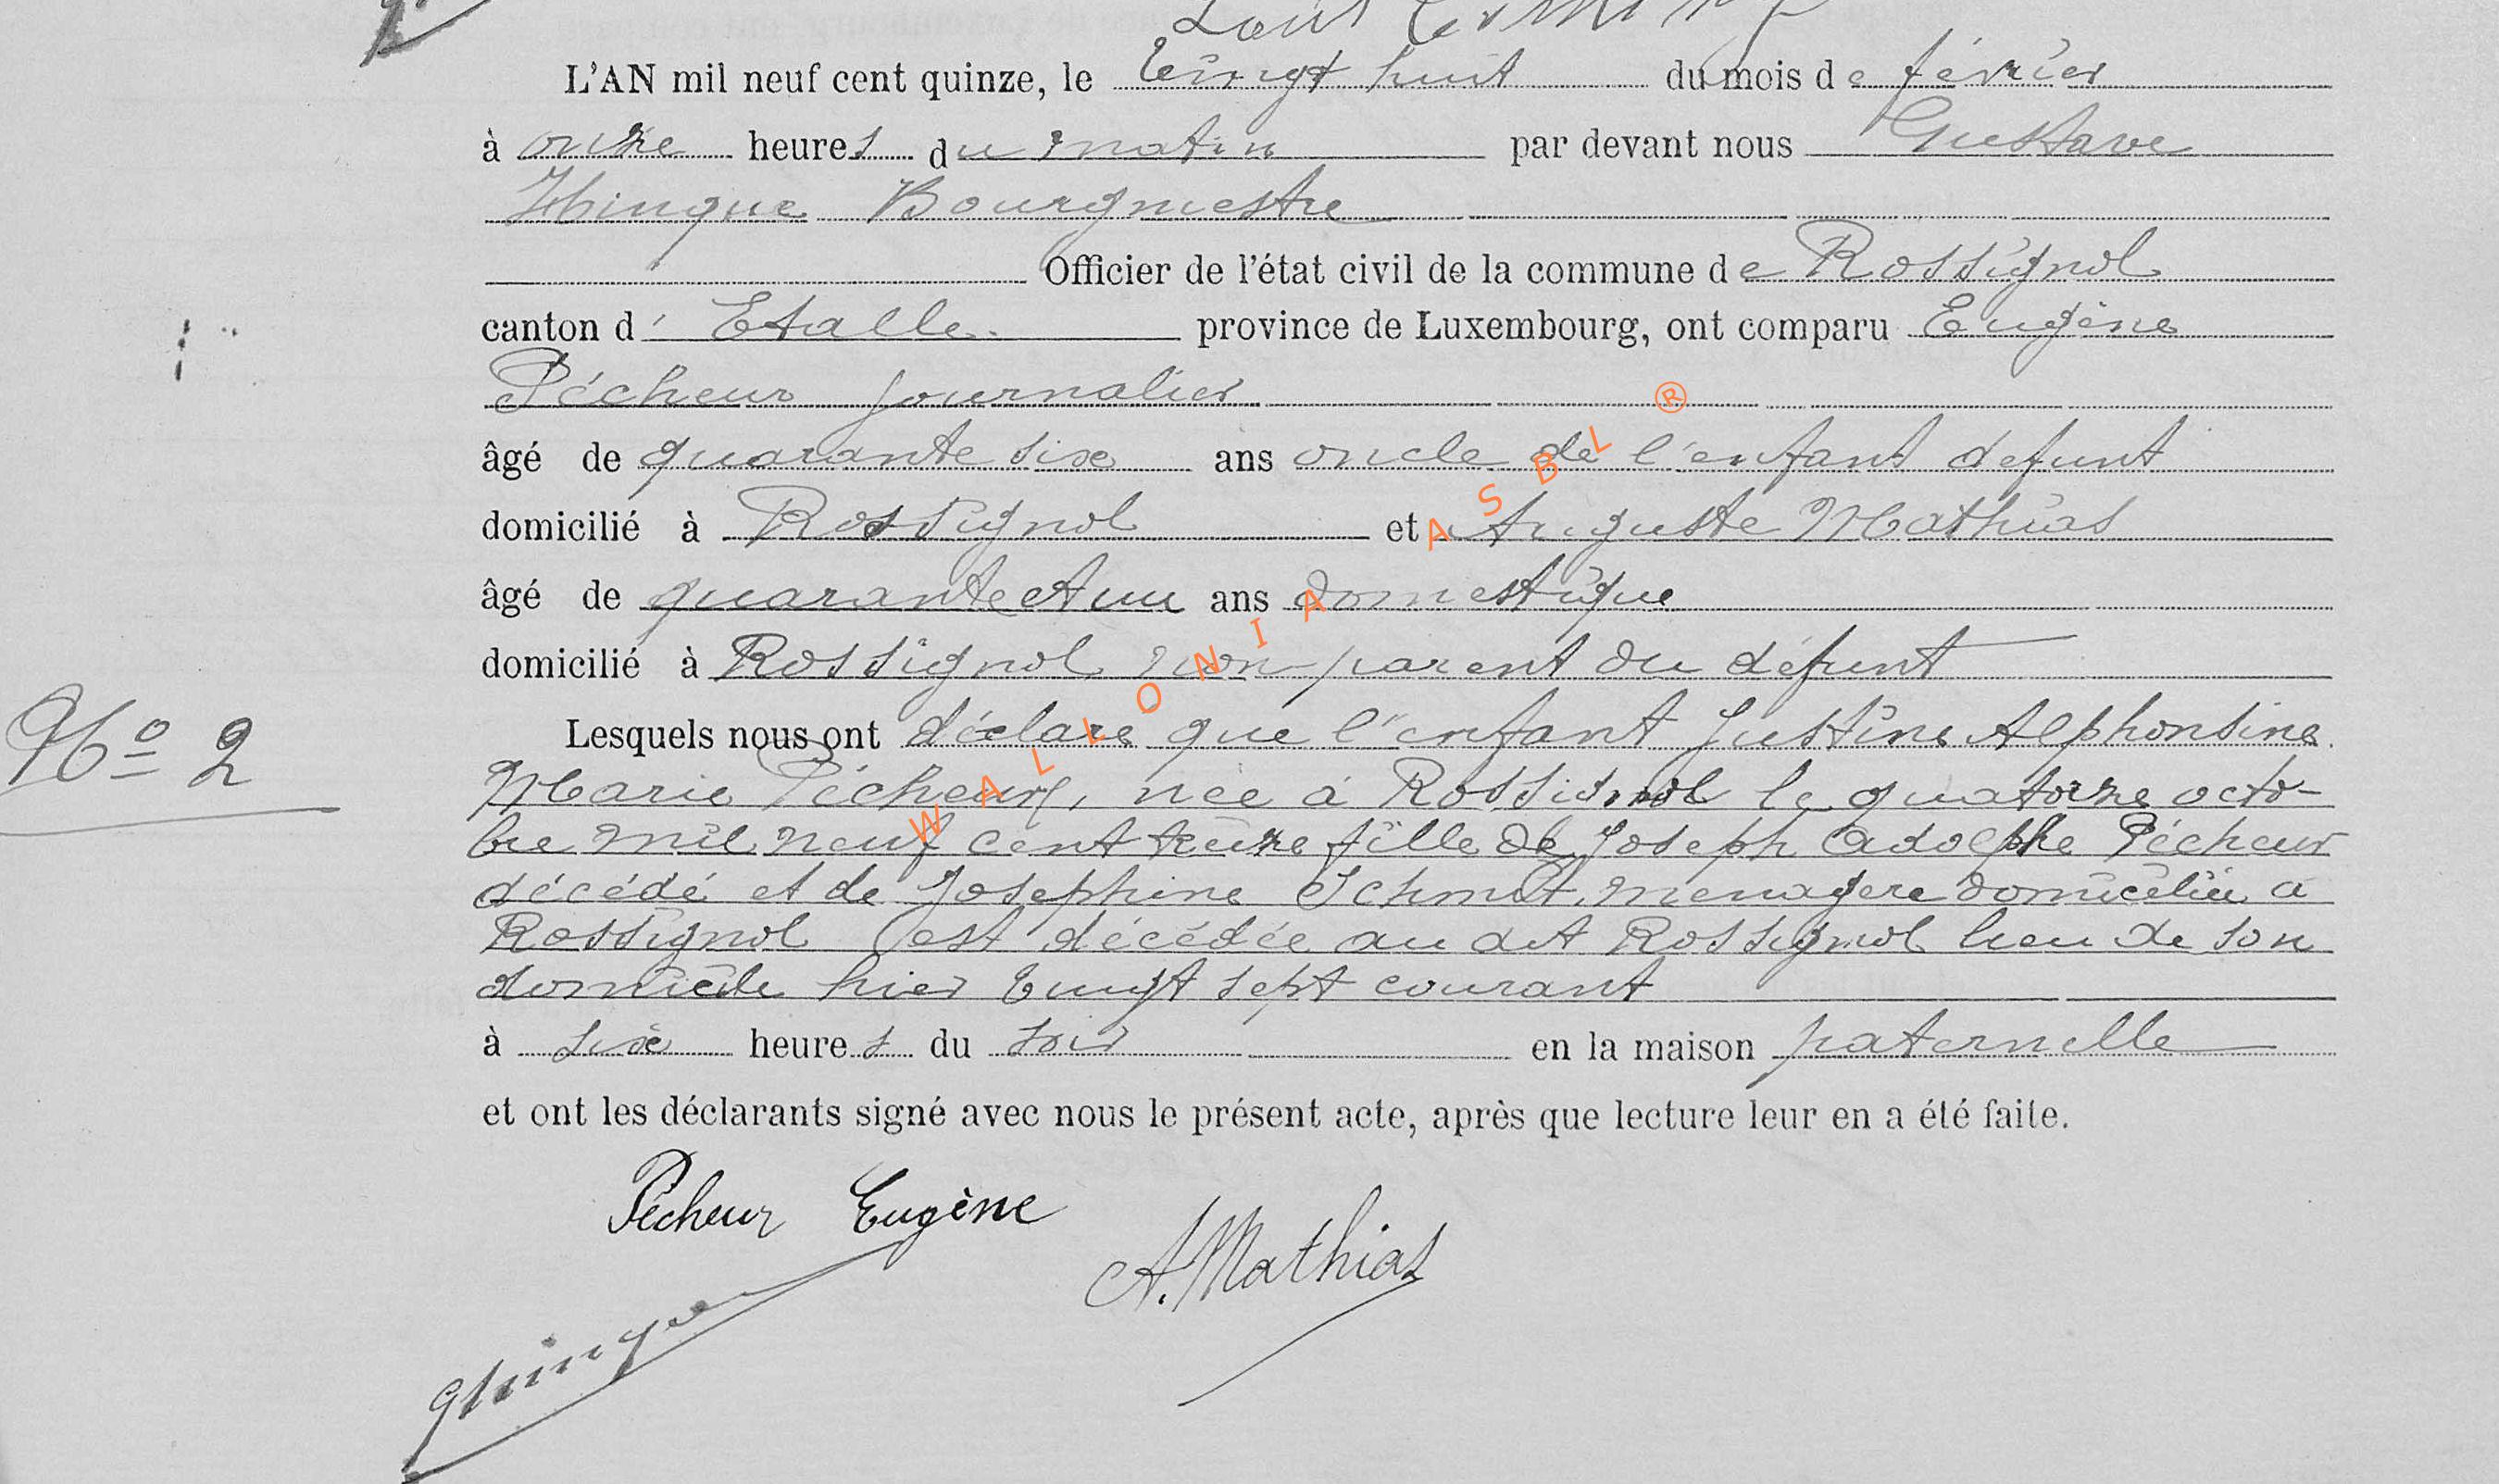 L'AN mil neuf cent quinze, le vingt huit du mois de février
à onze heures du matin par devant nous Gustave
Hinque Bourgmestre
Officier de l'état civil de la commune de Rossignol
canton d' Etalle. province de Luxembourg, ont comparu Eugène
Pécheur journalier
âgé de quarante six ans oncle de l'enfant defunt
domicilié à Rossignol et Auguste Mathias
âgé de quarante et un ans domestique
domicilié à Rossignol non parent du défunt
Nº 2
Lesquels nous ont déclaré que l'enfant Justine Alphonsine
Marie Pécheur, née à Rossignol le quatorze octo-
bre mil neuf cent treize fille de Joseph Adolphe Pécheur
décédé et de Josephine Schmit, menagere domiciliée à
Rossignol est décédée au dit Rossignol lieu de son
domicile hier vingt sept courant
à six heures du soir en la maison paternelle
et ont les déclarants signé avec nous le présent acte, après que lecture leur en a été faite.
Pécheur Eugène
A. Mathias
WALLONIA ASBL ®